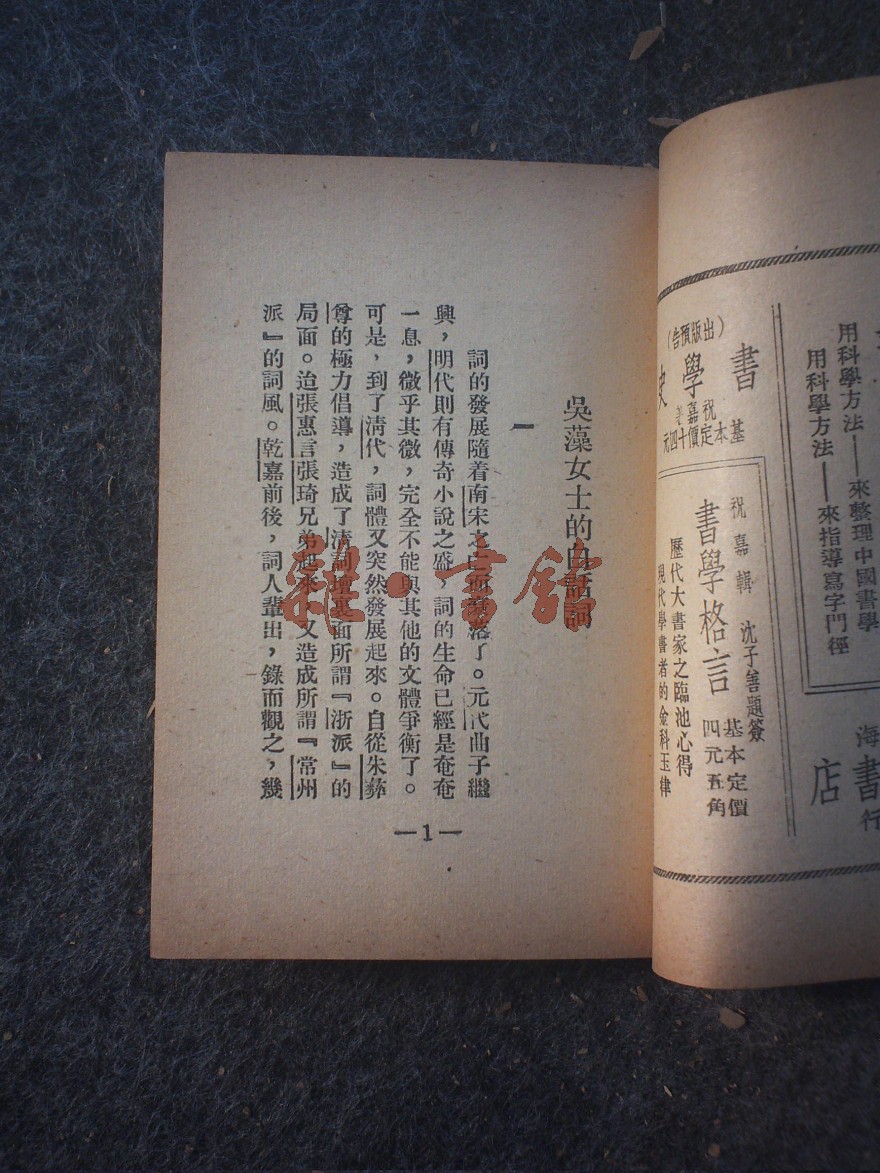 用科學方法——來整理中國書學
用科學方法——來指導寫字門徑
海
書店
行
(出版預告)
書學史
祝嘉著
基本定價十四元
祝嘉輯　沈子善題簽
書學格言
基本定價
四元五角
歷代大書家之臨池心得
現代學書者的金科玉律
吳藻女士的白話詞
一
詞的發展隨着南宋之亡而衰落了。元代曲子繼
興，明代則有傳奇小說之盛，詞的生命已經是奄奄
一息，微乎其微，完全不能與其他的文體爭衡了。
可是，到了清代，詞體又突然發展起來。自從朱彝
尊的極力倡導，造成了清詞壇裏面所謂『浙派』的
局面。迨張惠言張琦兄弟起來，又造成所謂『常州
派』的詞風。乾嘉前後，詞人輩出，錄而觀之，幾
—1—
雜·書館